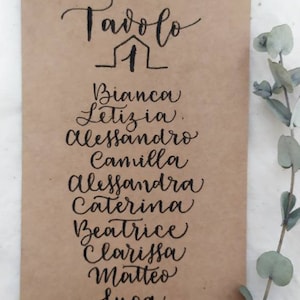 Tavolo
1
Bianca
Letizia.
Alessandro
Camilla
Alessandra
Caterina
Beatrice
Clarissa
Matteo